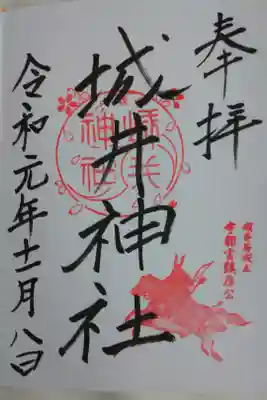 奉拝
城井神社
令和元年十一月八日
宇都宮鎮房公
城井神社